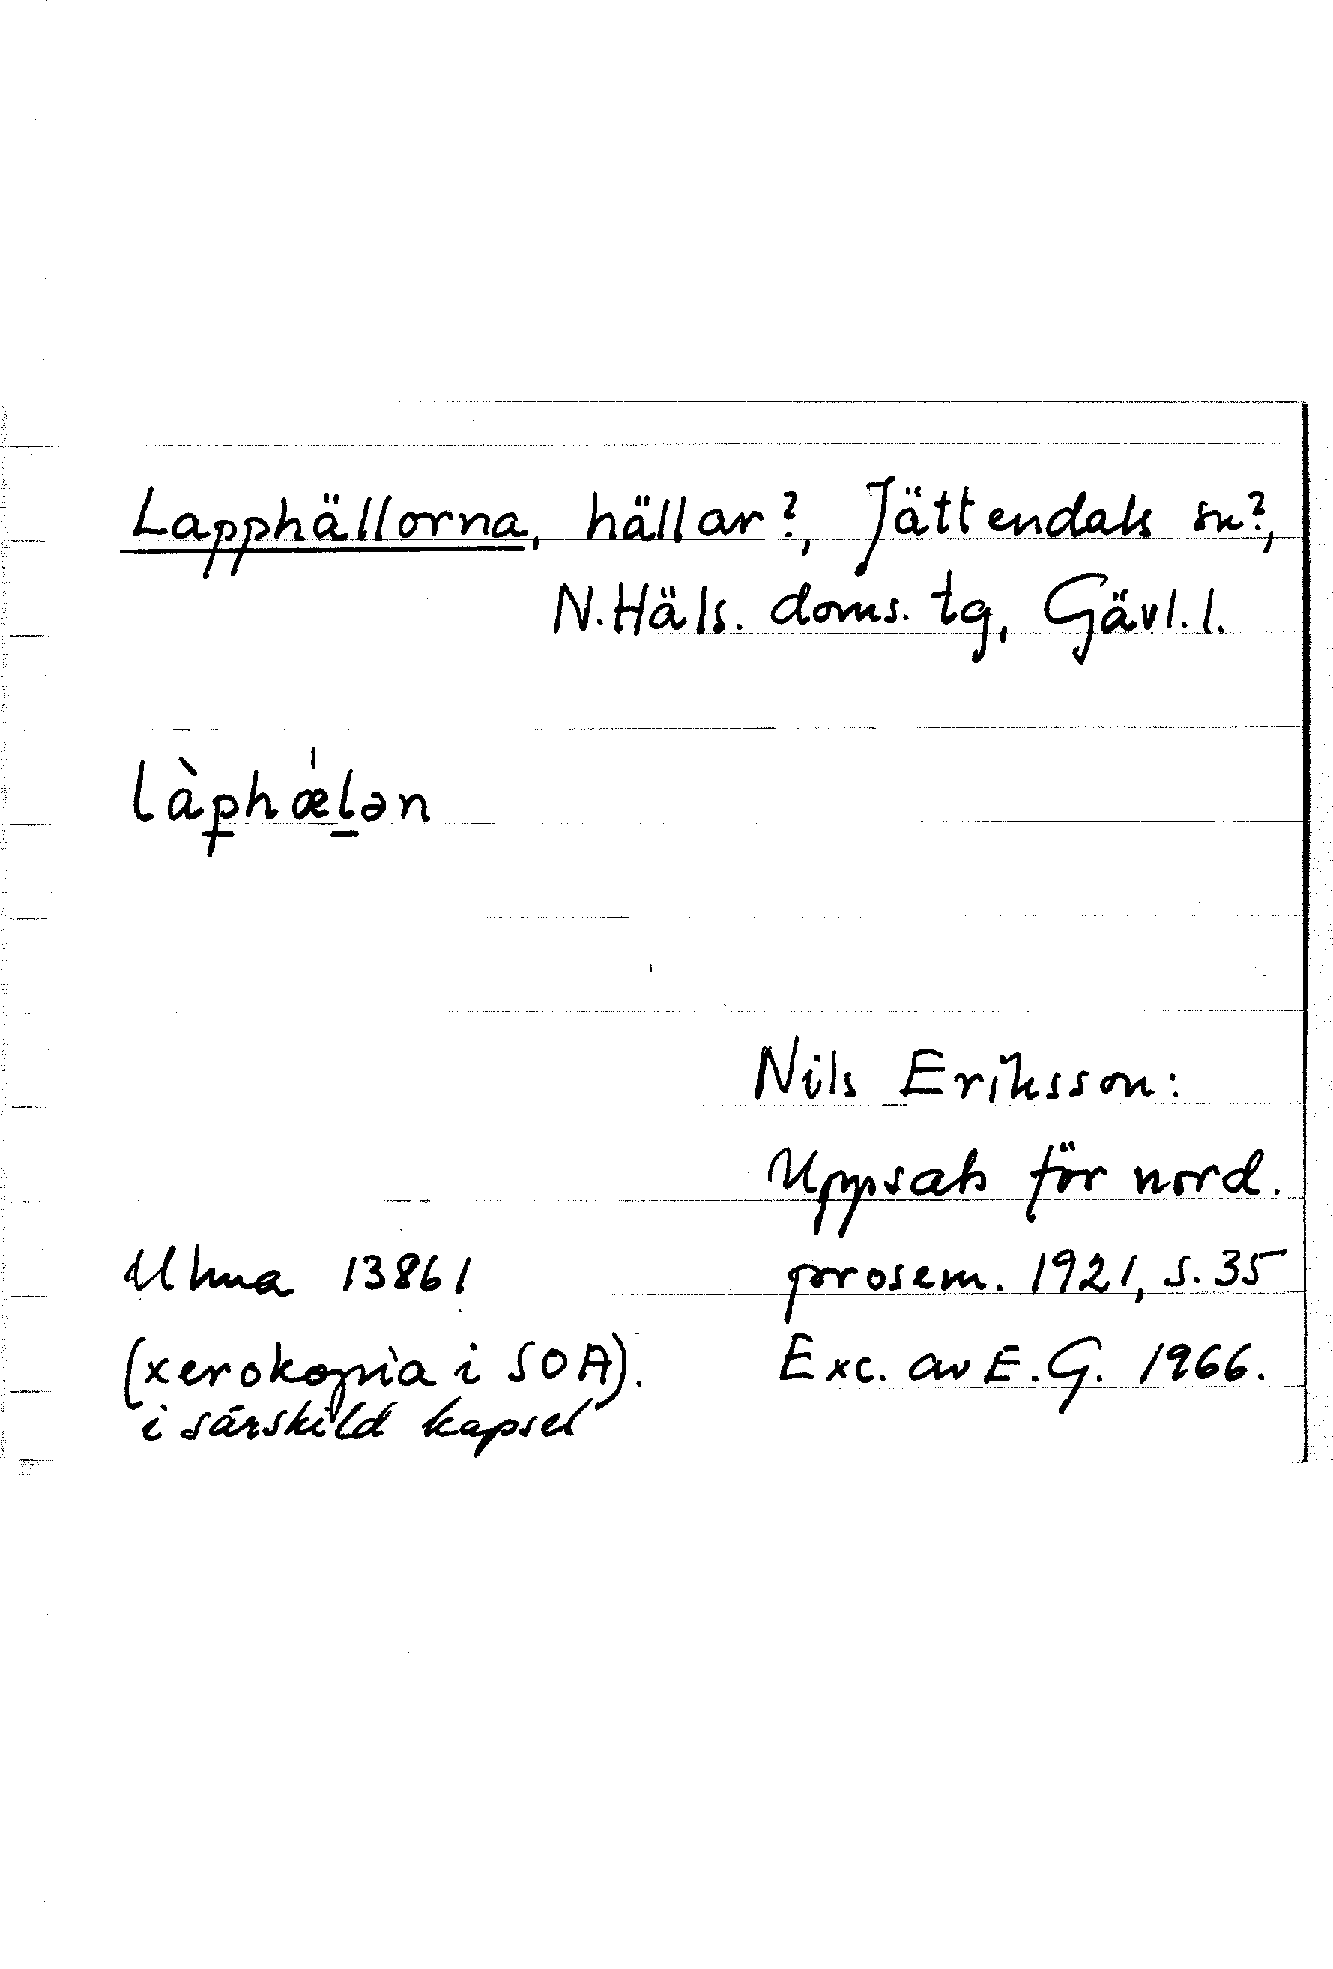 Lapphällorna, hällar?, Jättendals sn?,
N.Häls. doms. tg, Gävl. l.
làp̱hǽḻən
Nils Eriksson:
Uppsats för nord.
Ulma 13861 prosem. 1921, s. 35
(xerokopia i SOA). Exc. av E.G. 1966.
i särskild kapsel